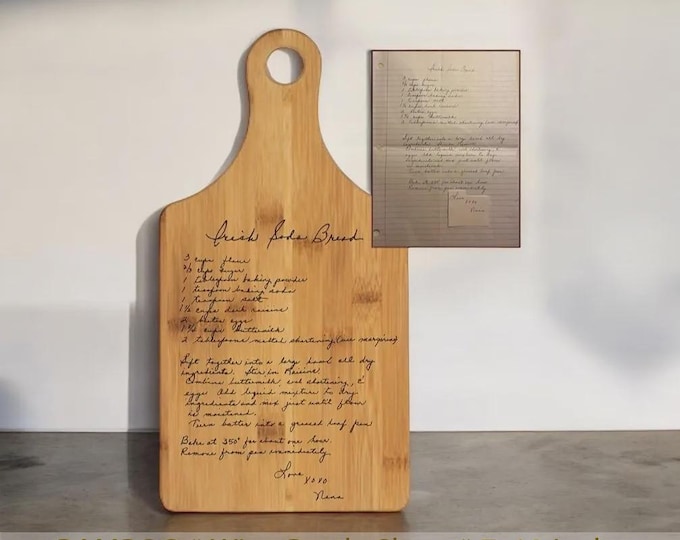 Irish Soda Bread
3 cups flour
2/3 cup sugar
1 tablespoon baking powder
1 teaspoon baking soda
1 teaspoon salt
1½ cups dark raisins
2 beaten eggs
1¾ cups buttermilk
2 tablespoons melted shortening (use margarine)
Sift together into a large bowl all dry
ingredients. Stir in Raisins.
Combine buttermilk, and shortening, &
eggs. Add liquid mixture to dry
ingredients and mix just until flour
is moistened.
Turn batter into a greased loaf pan
Bake at 350° for about one hour.
Remove from pan immediately.
Love
XOXO
Nana